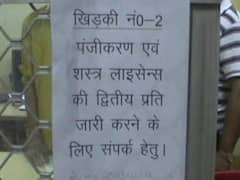 खिड़की नं0-2
पंजीकरण एवं
शस्त्र लाइसेन्स
की द्वितीय प्रति
जारी करने के
लिए संपर्क हेतु।